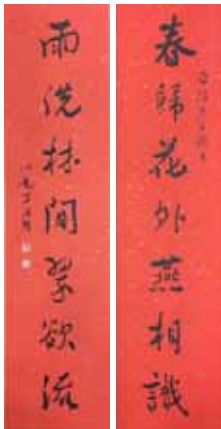 春歸花外燕相識
雨洗林間翠欲流